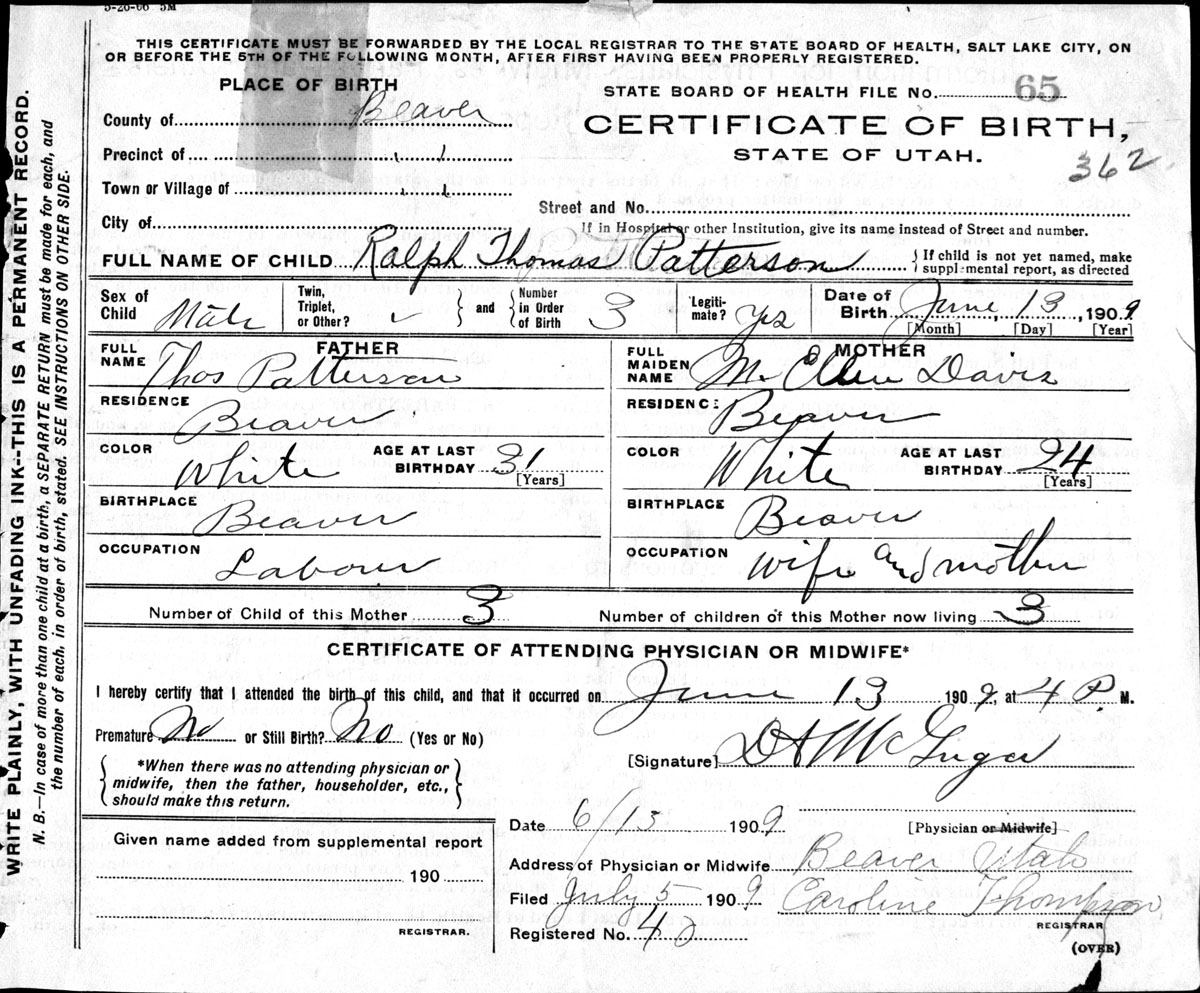 5-26-06 5M
THIS CERTIFICATE MUST BE FORWARDED BY THE LOCAL REGISTRAR TO THE STATE BOARD OF HEALTH, SALT LAKE CITY, ON
OR BEFORE THE 5TH OF THE FOLLOWING MONTH, AFTER FIRST HAVING BEEN PROPERLY REGISTERED.
PLACE OF BIRTH
STATE BOARD OF HEALTH FILE No. 65
County of Beaver
CERTIFICATE OF BIRTH,
STATE OF UTAH.
362
Precinct of " "
Town or Village of " "
Street and No.
City of
If in Hospital or other Institution, give its name instead of Street and number.
FULL NAME OF CHILD Ralph Thomas Patterson { If child is not yet named, make
supplemental report, as directed
Sex of Child Male
Twin, Triplet, or Other? and Number in Order of Birth 3
Legitimate? yes
Date of Birth June 13, 1909
[Month] [Day] [Year]
FATHER
FULL NAME Thos Patterson
RESIDENCE Beaver
COLOR White AGE AT LAST BIRTHDAY 31
[Years]
BIRTHPLACE Beaver
OCCUPATION Labour
MOTHER
FULL MAIDEN NAME M. Ellen Davis
RESIDENCE Beaver
COLOR White AGE AT LAST BIRTHDAY 24
[Years]
BIRTHPLACE Beaver
OCCUPATION wife and mother
Number of Child of this Mother 3 Number of children of this Mother now living 3
CERTIFICATE OF ATTENDING PHYSICIAN OR MIDWIFE*
I hereby certify that I attended the birth of this child, and that it occurred on June 13 1909, at 4 P. M.
Premature No or Still Birth? No (Yes or No)
[Signature]
*When there was no attending physician or
midwife, then the father, householder, etc.,
should make this return.
Date 6/15 1909 [Physician or Midwife]
Given name added from supplemental report
190
REGISTRAR.
Address of Physician or Midwife Beaver Utah
Filed July 5 1909 Caroline Thompson
REGISTRAR
Registered No. 40
(OVER)
WRITE PLAINLY, WITH UNFADING INK--THIS IS A PERMANENT RECORD.
N. B.—In case of more than one child at a birth, a SEPARATE RETURN must be made for each, and
the number of each, in order of birth, stated. SEE INSTRUCTIONS ON OTHER SIDE.